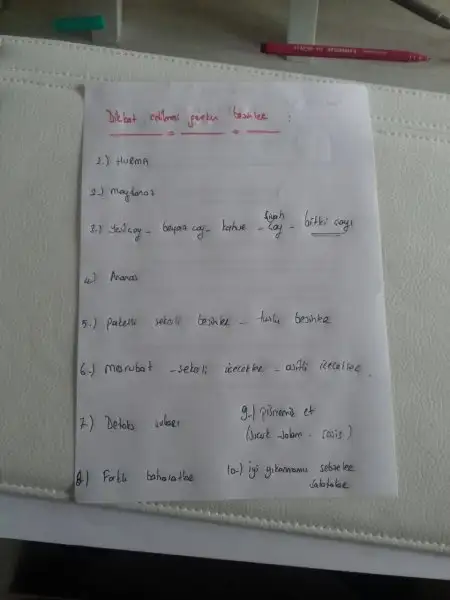 Dikkat edilmesi gereken besinler :
1.) HURMA
2.) maydanoz
3.) yeşil çay - beyaz çay - kahve - siyah çay - bitki çayı
4.) Ananas
5.) paketli şekerli besinler - tuzlu besinler
6.) meşrubat - şekerli içecekler - asitli içecekler.
7.) Detoks suları
8.) Farklı baharatlar
9.) pişmemiş et
(sucuk - salam - sosis)
10.) iyi yıkanmamış sebzeler
salatalar